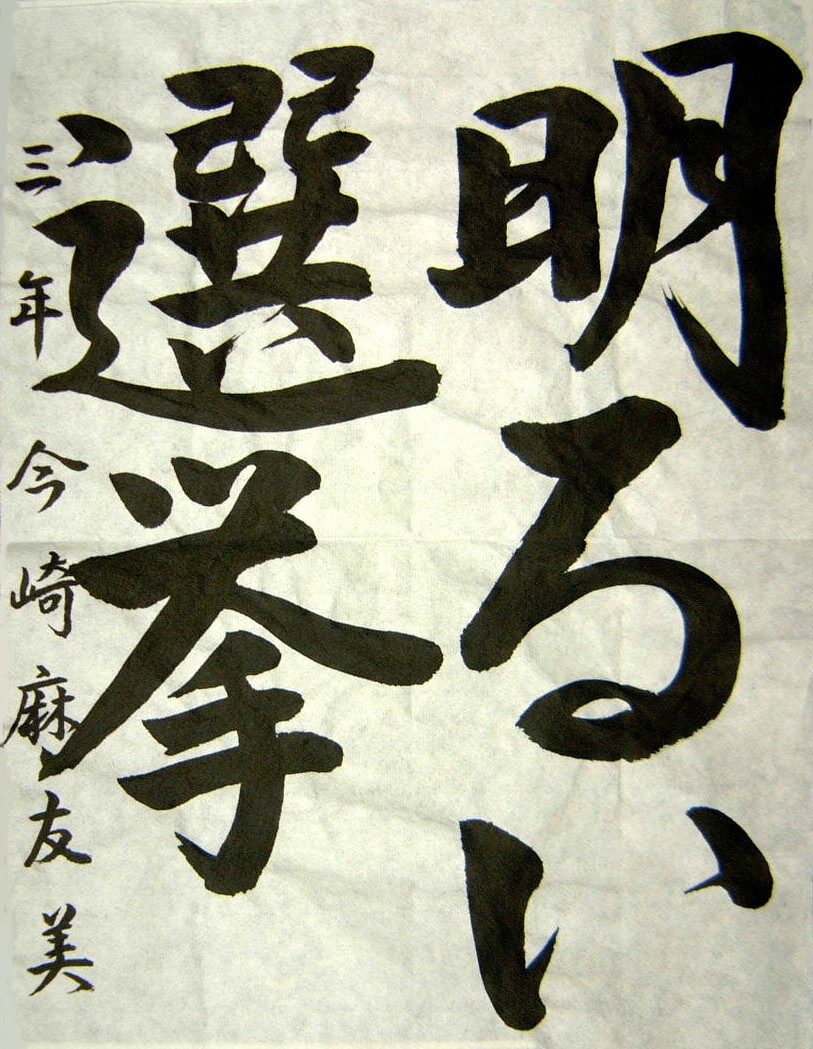 明るい
選挙
三年 今崎麻友美